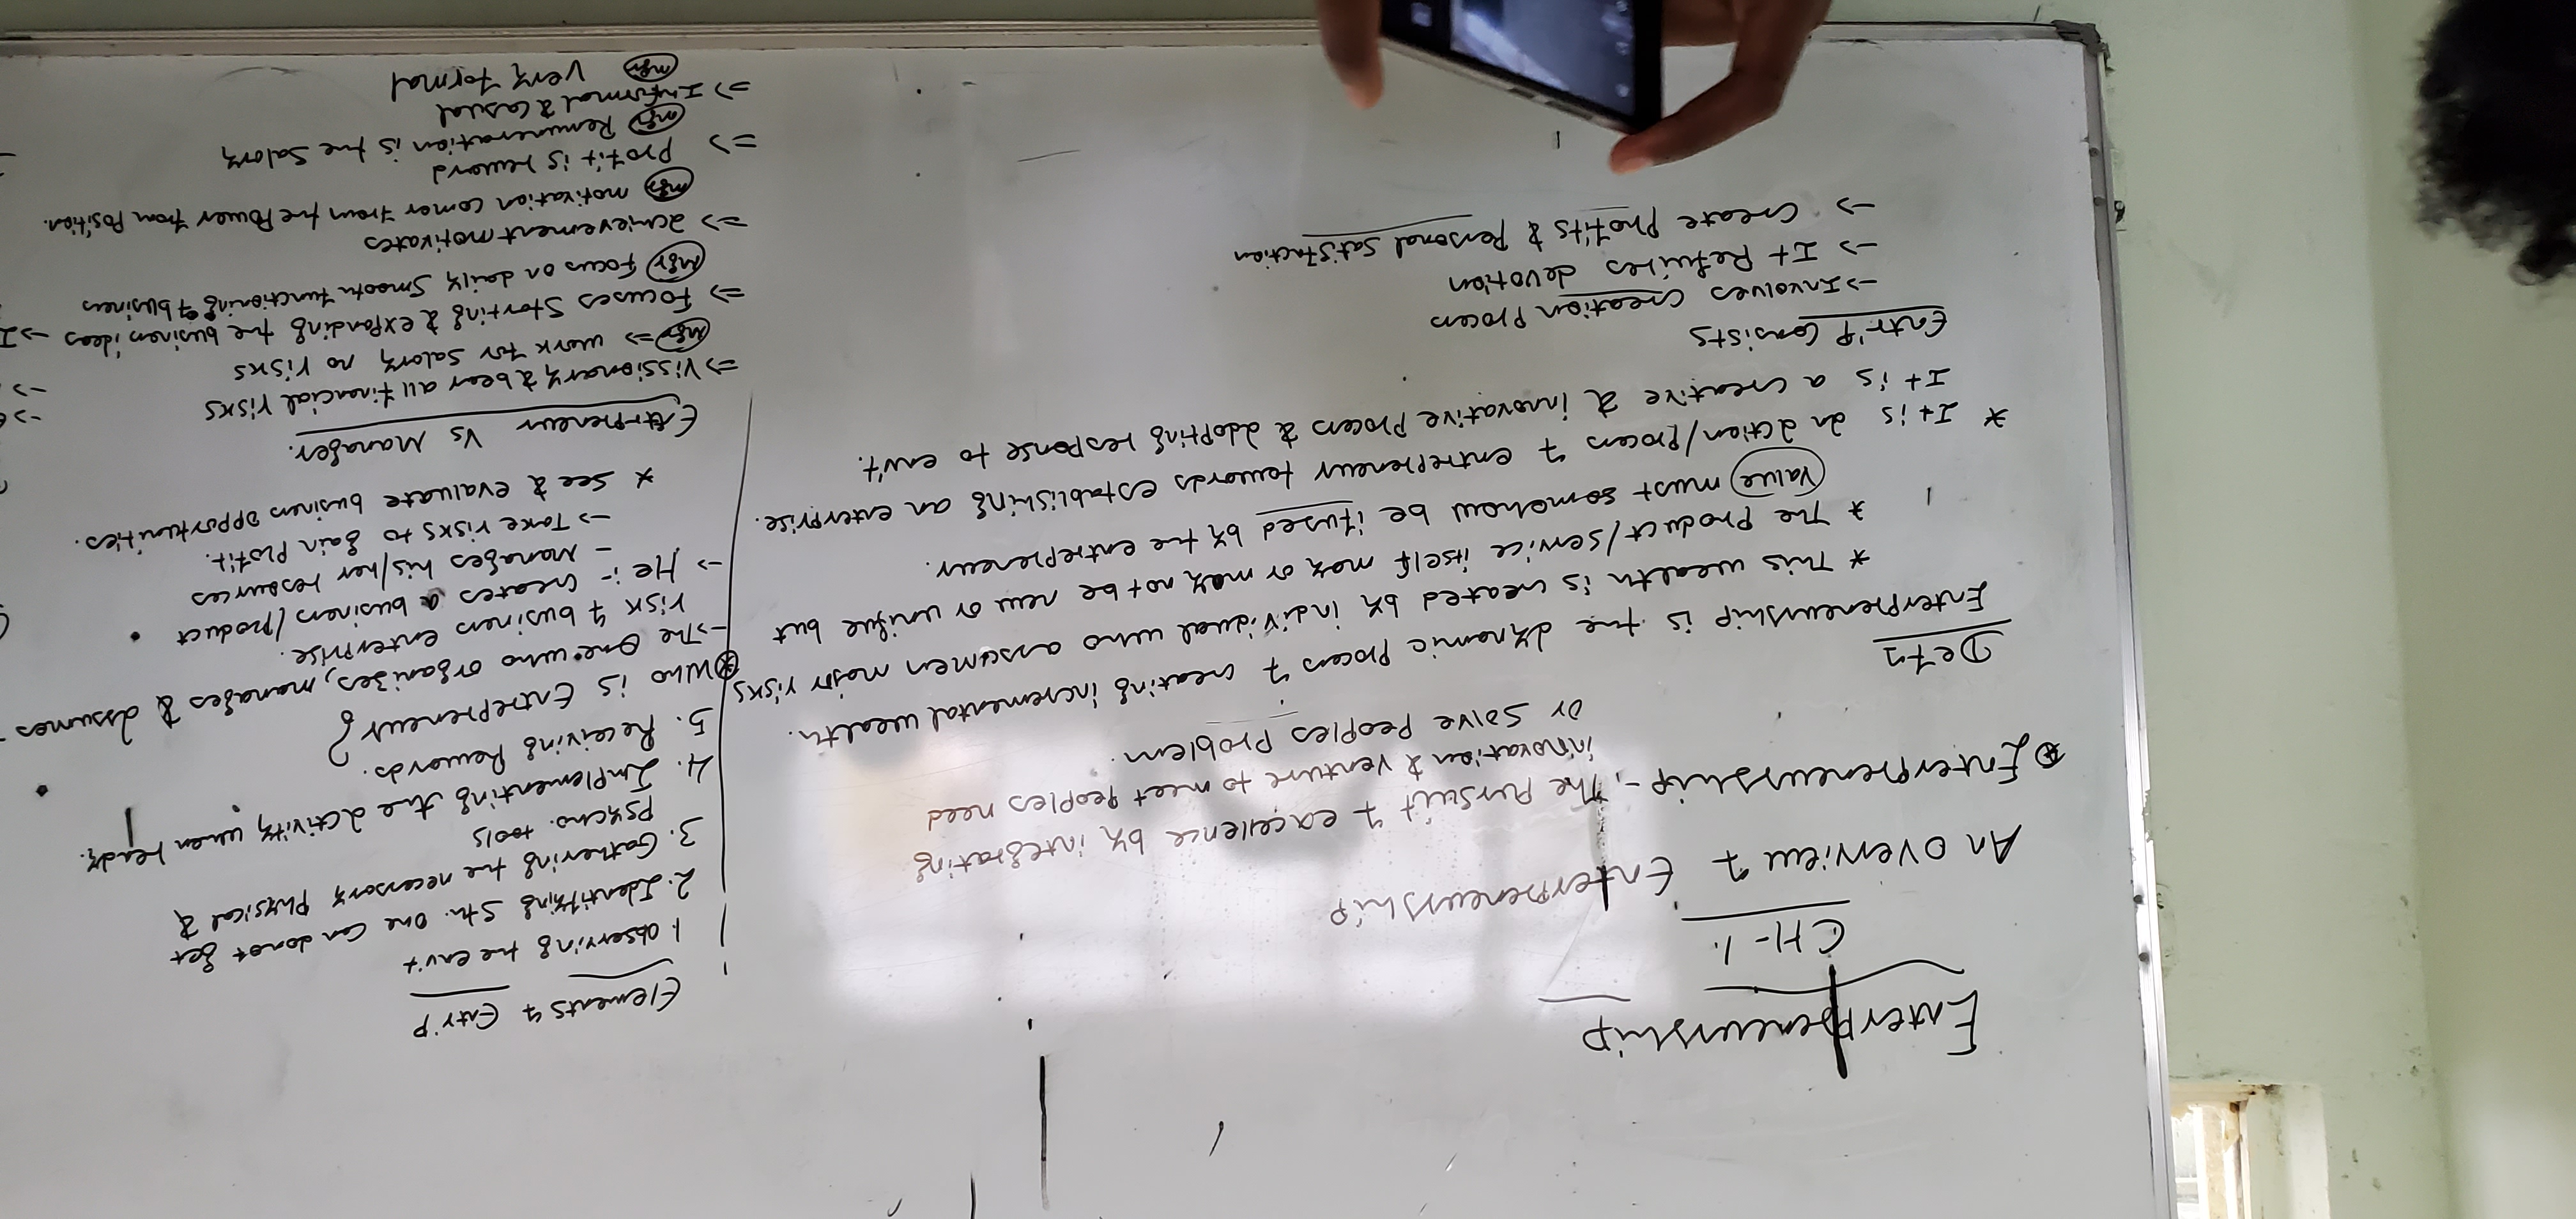 Enterpreneurship
CH-1.
An overview of Enterpreneurship
Enterpreneurship - The pursuit of eacellence by integrating
innovation & venture to meet peoples need
or solve peoples problem.
Defn
Enterpreneurship is the dynamic process of creating incremental wealth.
* This wealth is created by individual who assumen major risks
* The product/service itself may or may not be new or unique but
value must somehow be ifused by the entrepreneur.
* It is an action/process of entrepreneur towards establishing an enterprise.
It is a creative & innovative process & adopting response to env't.
Entr'p Consists
-> Involves creation process
-> It Requires devotion
-> create profits & personal satisfaction
Elements of Entr'p
1. Observing the env't
2. Identifying Sth. one can donot get
3. Gathering the necessary physical &
psycho. tools
4. Implementing the activity when ready.
5. Receiving Rewards.
Who is Entrepreneur?
-> The one who organizes, manages & assumes
risk of business enterprise.
-> He :- creates a business/product
- Manages his/her resources
-> Take risks to gain profit.
* See & evaluate business opportunities.
Entrpreneur Vs Manager.
=> Vissionary & bear all financial risks
mgr => work for salary no risks
=> Focuses Starting & expanding the business ideas
mgr Focus on daily smooth functioning of business
=> achievement motivates
mgr motivation comes from the power from position.
=> Profit is reward
mgr Remuneration is the salary
=> Informal & casual
mgr very formal